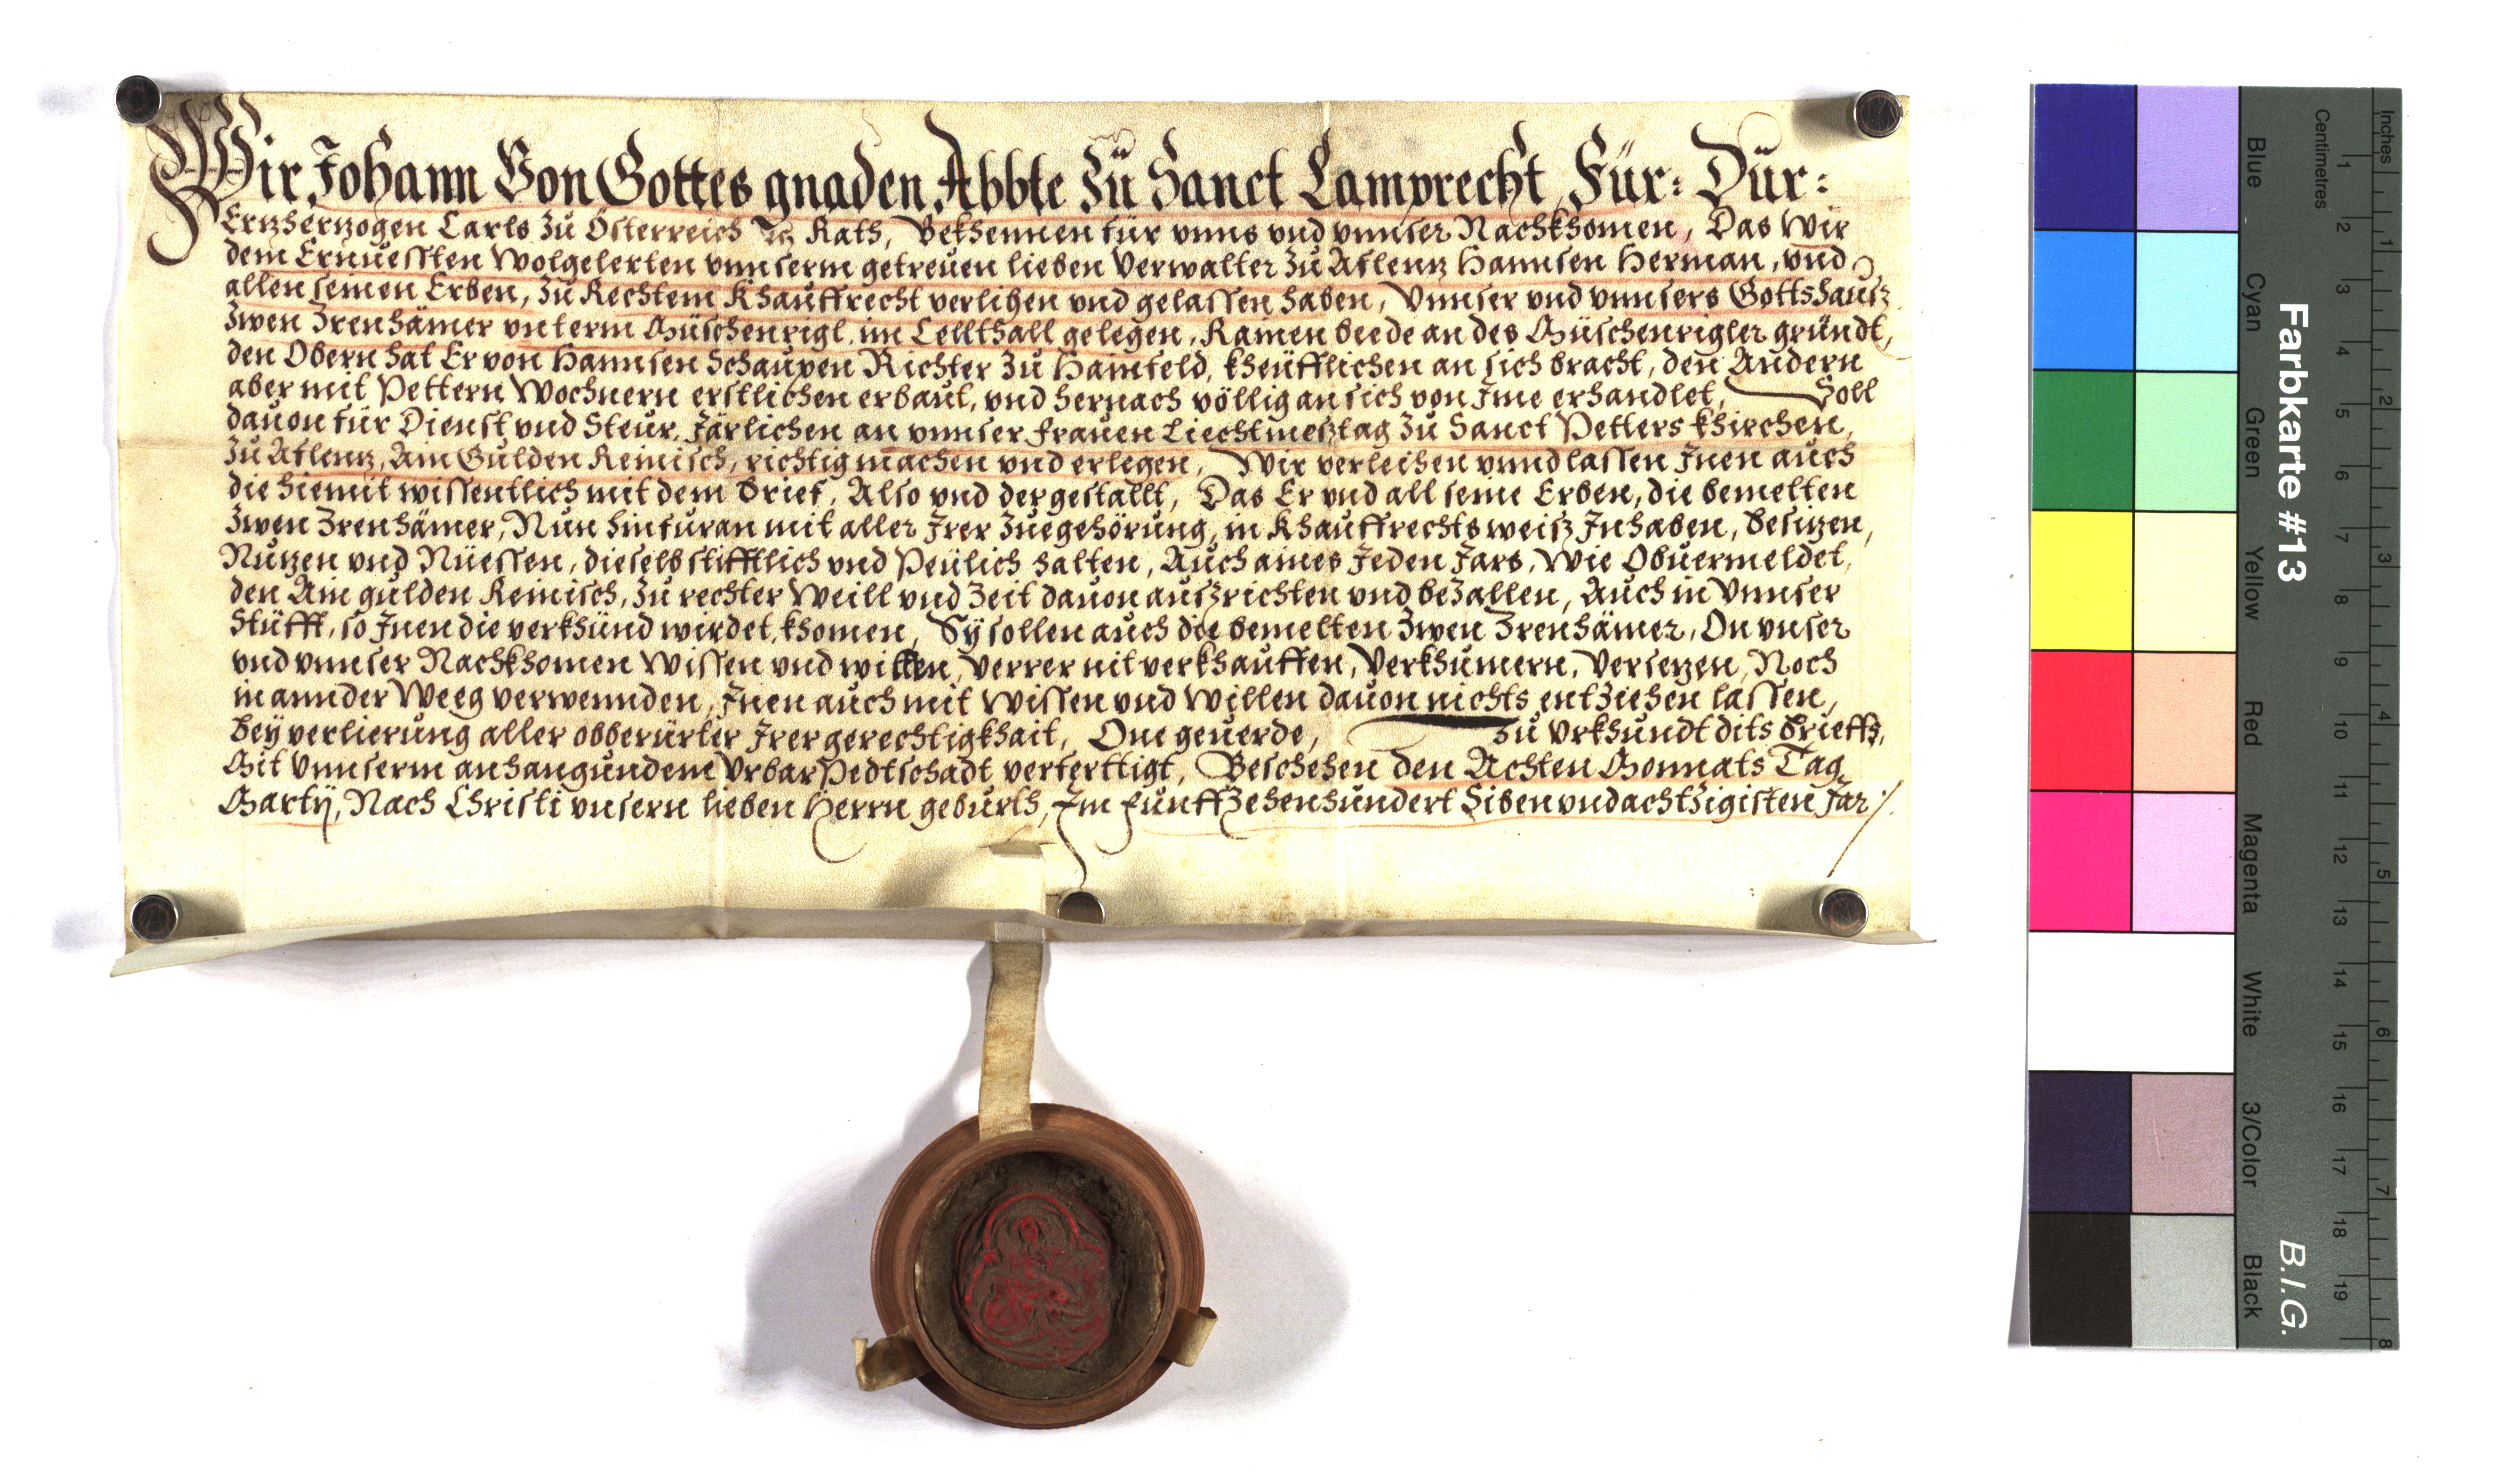 Wir Johann Von Gottes gnaden Abbte Zů Sanct Lamprecht, Für: Dür:
Ertzhertzogen Carls Zu Österreich Rath, Bekhennen für vnns vnd vnnser Nachkhomen, Das Wir
dem Ernuessten Wolgelerten vnnserm getreuen lieben Verwalter Zů Aflentz Hannsen Herman, vnd
allen seinen Erben, Zů Rechtem Khauffrecht verlihen vnd gelassen haben, Vnnser vnd vnnsers Gottshausz
Zwen Zrenhämer vnterm Müschenrigl im Cellthall gelegen, Rainen beede an des Müschenrigler gründt,
den Obern hat Er von Hannsen Schaupen Richter Zů Hainfeld, kheüfflichen an sich bracht, den Andern
aber mit Pettern Wochnern erstlichen erbaut, vnd hernach völlig an sich von Ime erhandlet, Soll
dauon für Dienst vnd Steur, Järlichen an vnnser Frauen Liechtmesztag Zů Sanct Petters khirchen,
Zů Aflentz, Ain Gulden Reinisch, richtig machen vnd erlegen, Wir verleihen vnnd lassen Inen auch
die hiemit wissentlich mit dem brief, Also vnd dergestallt, Das Er vnd all seine Erben, die bemelten
Zwen Zrenhämer, Nun hinfuran mit aller Irer Zuegehörung, in Khauffrechtsweisz Inhaben, besitzen,
Nutzen vnd Nüessen, dieselb stifftlich vnd Peülich halten, Auch aines Jeden Jars, Wie Obuermeldet,
den Ain gulden Reinisch, Zů rechter Weill vnd Zeit dauon auszrichten vnd beZallen, Auch in Vnnser
Stüfft, so Inen die verkhünd wirdet, khomen, Sÿ sollen auch die bemelten Zwen Zrenhämer, On vnser
vnd vnnser Nachkhomen Wissen vnd willen, verrer nit verkhauffen, Verkhumern, Versetzen, Noch
in annder Weeg verwennden, Inen auch mit Wissen vnd Willen dauon nichts entziehen lassen,
beÿ verlierung aller obberürter Irer gerechtigkhait, One geuerde, Zu Vrkhundt dits brieffs,
Mit Vnnserm anhangundem Vrbar Pedtschadt verferttigt, Beschehen den Achten Monnats Tag
Martÿ, Nach Christi vnsern lieben Herrn geburth, Im Funffzehenhundert Siben vnd achtzigisten Jar
Farbkarte #13 B.I.G.
Inches 1 2 3 4 5 6 7 8
Centimetres 1 2 3 4 5 6 7 8 9 10 11 12 13 14 15 16 17 18 19
Blue Cyan Green Yellow Red Magenta White 3/Color Black